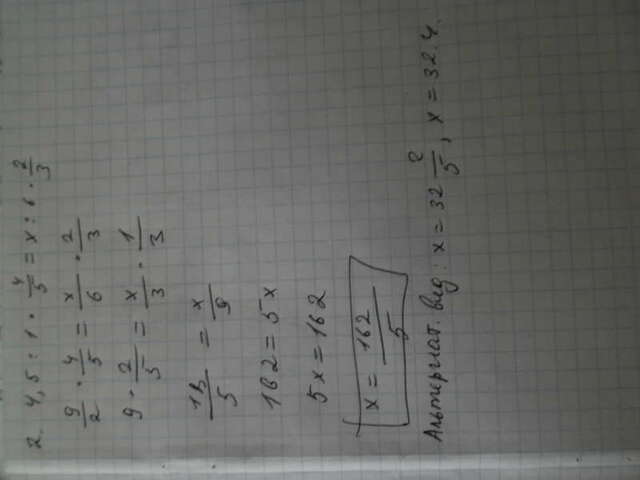 2. 4,5 : 1 · 4/5 = x : 6 · 2/3
9/2 · 4/5 = x/6 · 2/3
9 · 2/5 = x/3 · 1/3
18/5 = x/9
162 = 5x
5x = 162
x = 162/5
Альтернат. вид: x = 32 2/5, x = 32.4.